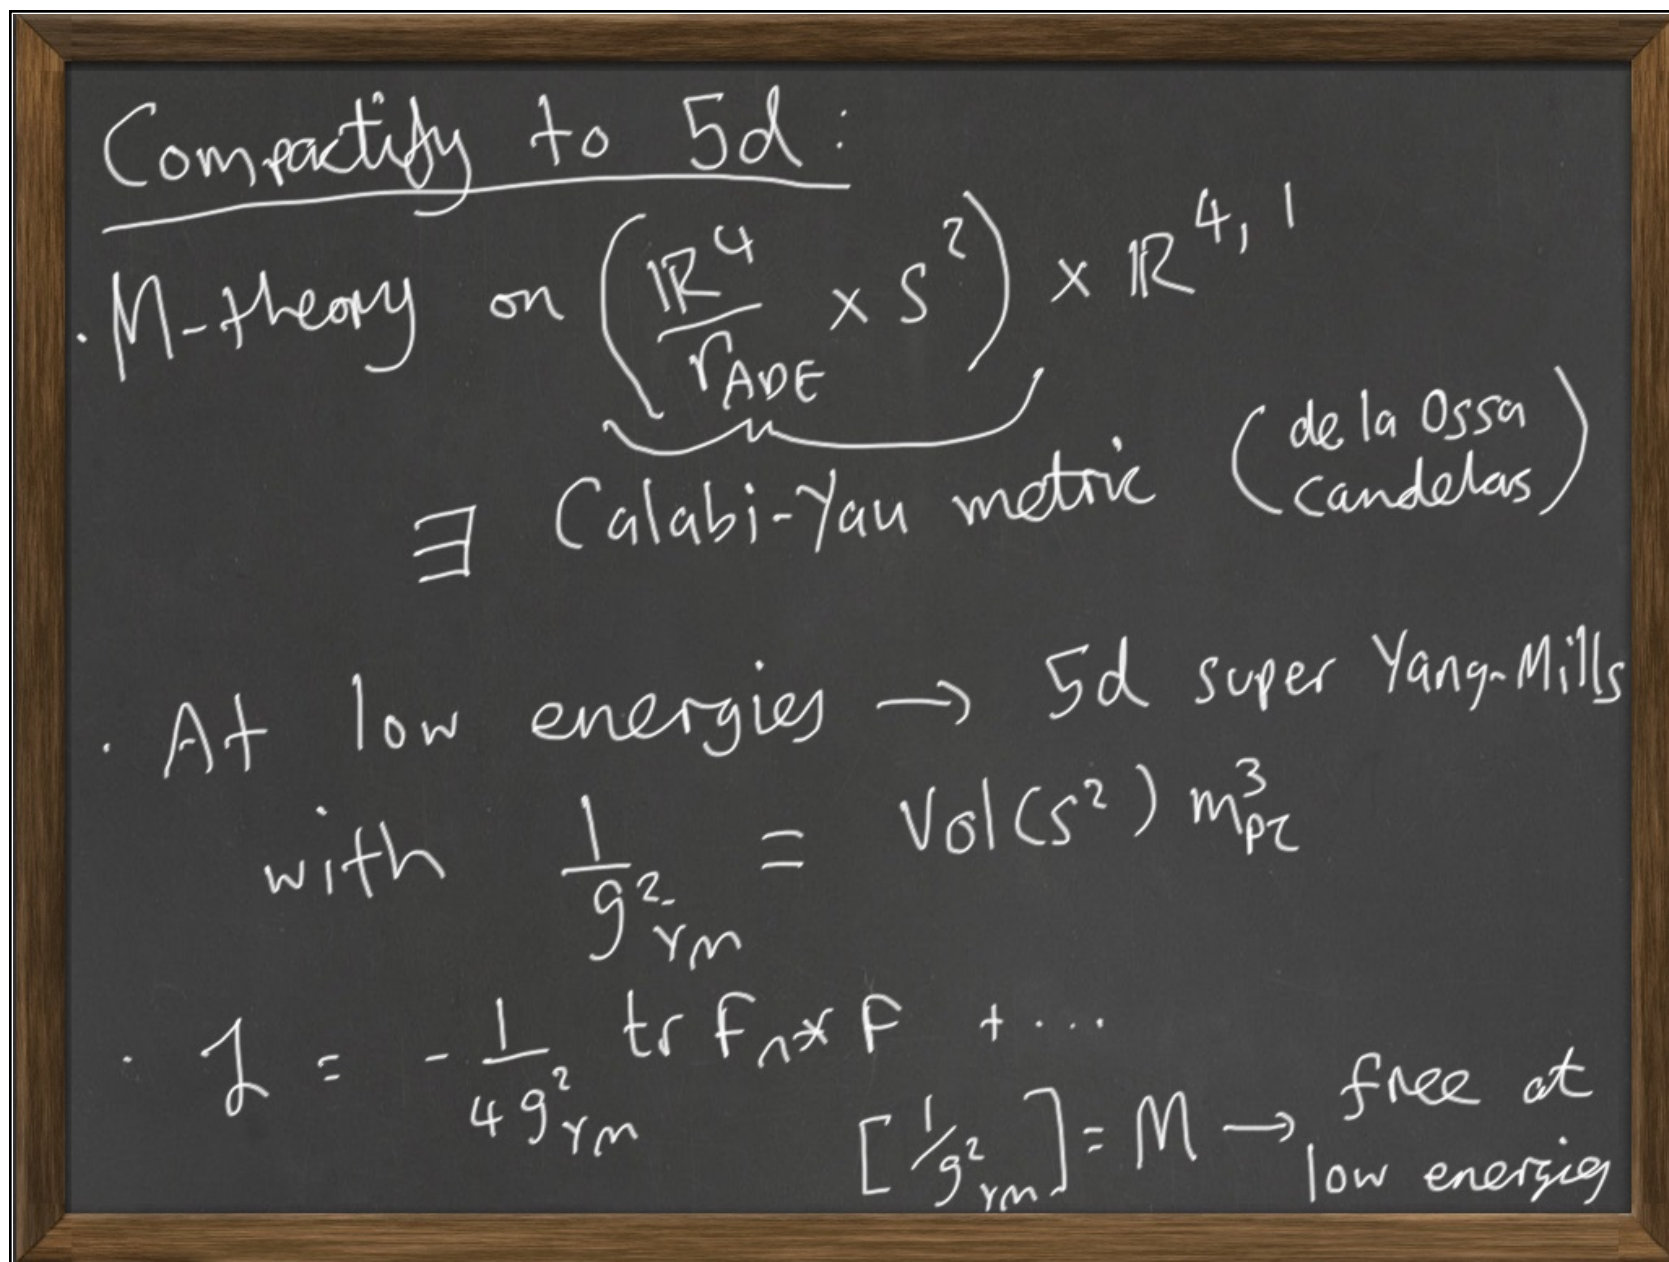 Compactify to 5d:
· M-theory on (ℝ⁴/Γ_ADE × S²) × ℝ^{4,1}
∃ Calabi-Yau metric (de la Ossa
Candelas)
· At low energies → 5d super Yang-Mills
with 1/g²_YM = Vol(S²) m³_pl
· ℒ = -1/4g²_YM tr F∧*F + ...
[1/g²_YM] = M → free at
low energies